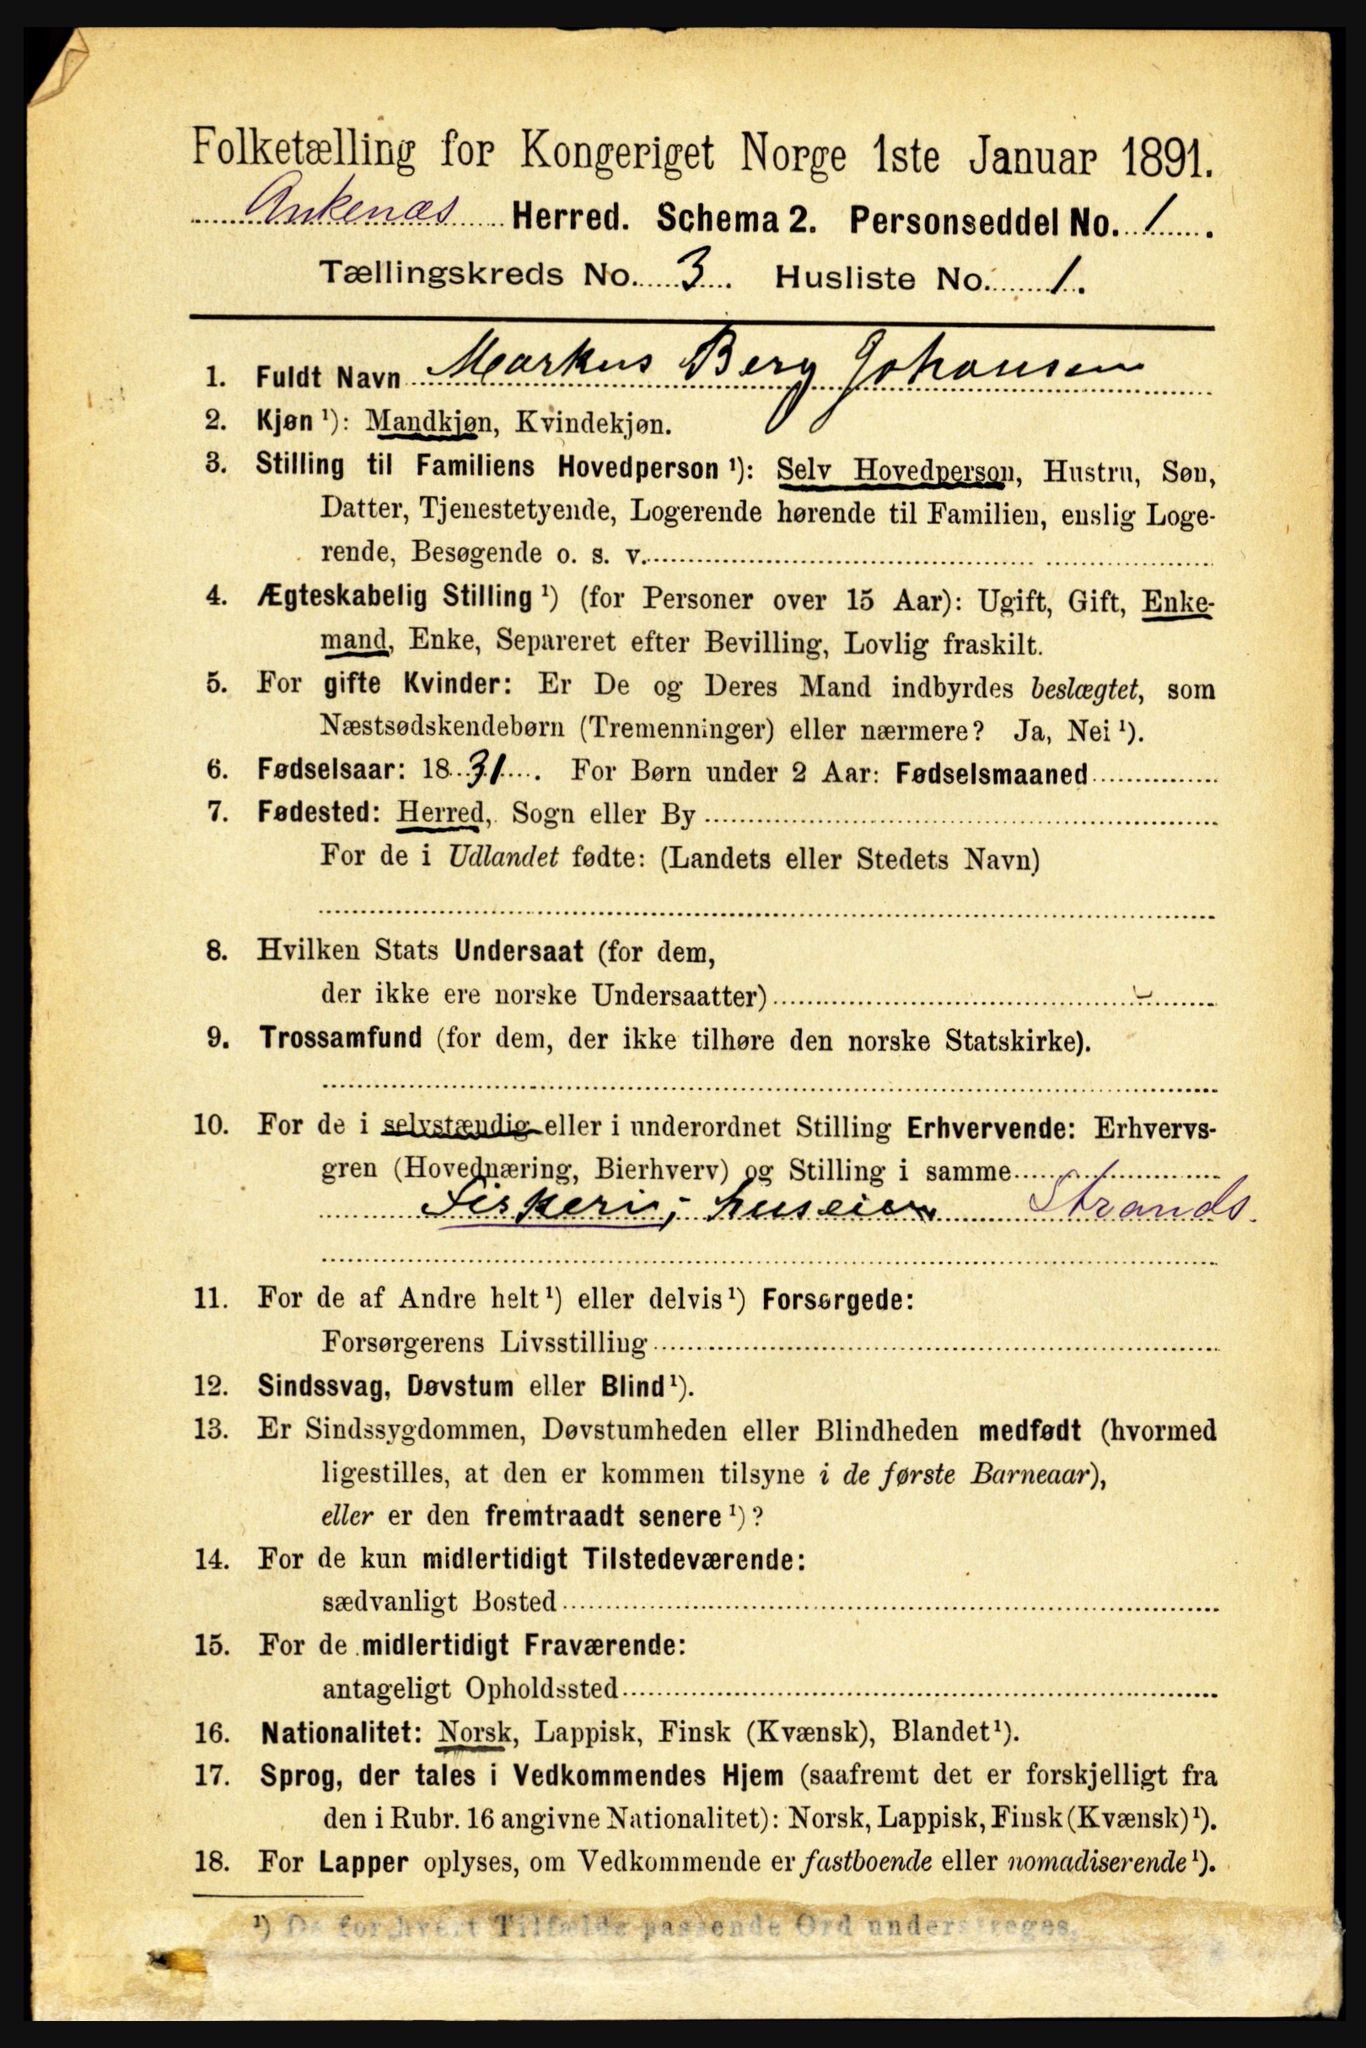 Folketælling for Kongeriget Norge 1ste Januar 1891.
Ankenæs Herred. Schema 2. Personseddel No. 1.
Tællingskreds No. 3. Husliste No. 1.
1. Fuldt Navn Markus Berg Johansen
2. Kjøn ¹): Mandkjøn, Kvindekjøn.
3. Stilling til Familiens Hovedperson ¹): Selv Hovedperson, Hustru, Søn,
Datter, Tjenestetyende, Logerende hørende til Familien, enslig Loge-
rende, Besøgende o. s. v.
4. Ægteskabelig Stilling ¹) (for Personer over 15 Aar): Ugift, Gift, Enke-
mand, Enke, Separeret efter Bevilling, Lovlig fraskilt.
5. For gifte Kvinder: Er De og Deres Mand indbyrdes beslægtet, som
Næstsødskendebørn (Tremenninger) eller nærmere? Ja, Nei ¹).
6. Fødselsaar: 1831. For Børn under 2 Aar: Fødselsmaaned
7. Fødested: Herred, Sogn eller By
For de i Udlandet fødte: (Landets eller Stedets Navn)
8. Hvilken Stats Undersaat (for dem,
der ikke ere norske Undersaatter)
9. Trossamfund (for dem, der ikke tilhøre den norske Statskirke).
10. For de i selvstændig eller i underordnet Stilling Erhvervende: Erhvervs-
gren (Hovednæring, Bierhverv) og Stilling i samme
Fiskeri, huseier Strands.
11. For de af Andre helt ¹) eller delvis ¹) Forsørgede:
Forsørgerens Livsstilling
12. Sindssvag, Døvstum eller Blind ¹).
13. Er Sindssygdommen, Døvstumheden eller Blindheden medfødt (hvormed
ligestilles, at den er kommen tilsyne i de første Barneaar),
eller er den fremtraadt senere ¹)?
14. For de kun midlertidigt Tilstedeværende:
sædvanligt Bosted
15. For de midlertidigt Fraværende:
antageligt Opholdssted
16. Nationalitet: Norsk, Lappisk, Finsk (Kvænsk), Blandet ¹).
17. Sprog, der tales i Vedkommendes Hjem (saafremt det er forskjelligt fra
den i Rubr. 16 angivne Nationalitet): Norsk, Lappisk, Finsk (Kvænsk) ¹).
18. For Lapper oplyses, om Vedkommende er fastboende eller nomadiserende ¹).
¹) De for hvert Tilfælde passende Ord understreges.